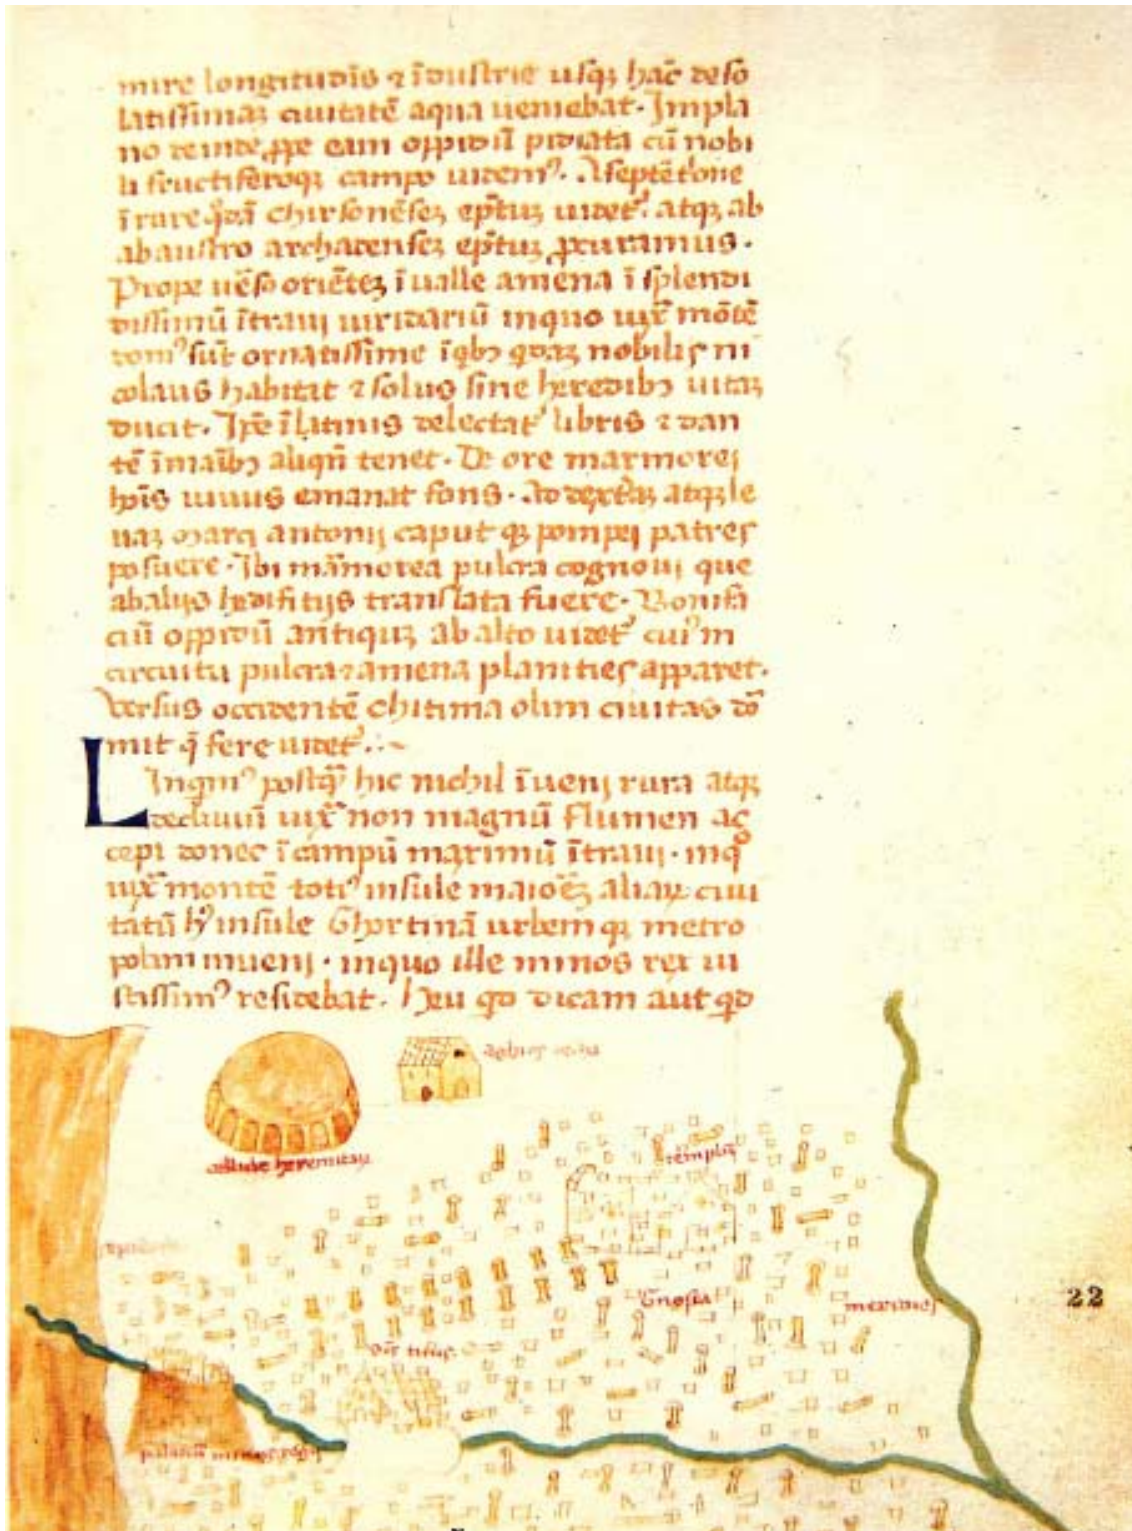 mire longitudīs ⁊ īdustrie usqꝫ hac̄ deso
latissimaꝫ ciuitatē aqua ueniebat. Impla
no deinde ꝓpe eam oppidū pidiata cū nobi
li fructiferoqꝫ campo uidemꝰ. A septēt̄ione
ī rure q̄dā chirsonēseꝫ ep̄tuꝫ uidet᷑. atqꝫ ab
ab austro archadenseꝫ ep̄tuꝫ ꝓcuramus.
Prope ūeso oriēteꝫ ī ualle amena ī splendi
dissimū ītrauj uiridariū inquo iux̄ mōtē
domꝰ sūt ornatissime ī qbꝫ qdaꝫ nobilis ni
colaus habitat ⁊ solus sine heredibꝫ uitaꝫ
ducit. Ip̄e ī latinis delectat᷑ libris ⁊ dan
tē ī maībꝫ aliqn̄ tenet. De ore marmorej
hīs uiuus emanat fons. Ad dext̄aꝫ atqꝫ le
uaꝫ marci antonij caput qꝫ pompej patres
posuere. Ibi mārmorea pulcra cognouj que
ab alijs hedifitijs translata fuere. Bonifa
ciū oppidū antiquꝫ ab alto uidet᷑ cuiꝰ in
circuitu pulcra ⁊ amena planities apparet.
Versus occidentē chitima olim ciuitas dō
mit q̄ fere uidet᷑.
Linqimꝰ postq̄ hic nichil īuenj rura atqꝫ
decliuiū iux̄ non magnū flumen ac
cepi donec ī campū maximū ītrauj. inq̊
iux̄ montē totiꝰ insule maiōeꝫ aliaꝝ ciui
tatū hꝰ insule Ghortinā urbem qꝫ metro
polim inuenj. inquo ille minos rex iu
stissimꝰ residebat. heu qd dicam aut qd
cellule heremitaꝝ
tēpluꝫ
Gnosia
meridies
22